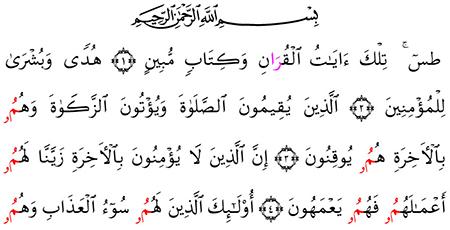 بِسْمِ ٱللَّهِ ٱلرَّحْمَٰنِ ٱلرَّحِيمِ
طسٓۚ تِلۡكَ ءَايَٰتُ ٱلۡقُرَانِ وَكِتَابٖ مُّبِينٍ ﴿١﴾ هُدٗى وَبُشۡرَىٰ
لِلۡمُؤۡمِنِينَ ﴿٢﴾ ٱلَّذِينَ يُقِيمُونَ ٱلصَّلَوٰةَ وَيُؤۡتُونَ ٱلزَّكَوٰةَ وَهُمُۥ
بِٱلۡأَخِرَةِ هُمُۥ يُوقِنُونَ ﴿٣﴾ إِنَّ ٱلَّذِينَ لَا يُؤۡمِنُونَ بِٱلۡأَخِرَةِ زَيَّنَّا لَهُمُۥ
أَعۡمَٰلَهُمُۥ فَهُمُۥ يَعۡمَهُونَ ﴿٤﴾ أُوْلَٰٓئِكَ ٱلَّذِينَ لَهُمُۥ سُوٓءُ ٱلۡعَذَابِ وَهُمُۥ